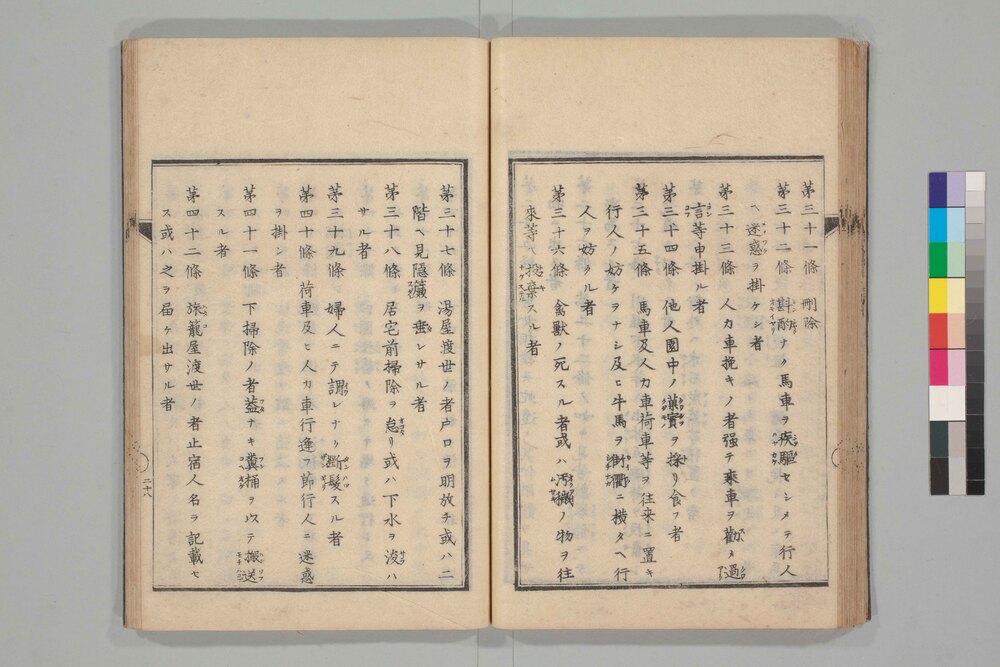 第三十一條　刪除
第三十二條　斟酌ナク馬車ヲ疾驅セシメテ行人
ヘ迷惑ヲ掛ケシ者
第三十三條　人力車挽キノ者强テ乘車ヲ勸メ過
言等申掛ル者
第三十四條　他人園中ノ菓實ヲ採リ食フ者
第三十五條　馬車及人力車荷車等ヲ往來ニ置キ
行人ノ妨ケヲナシ及ヒ牛馬ヲ街衢ニ横タヘ行
人ヲ妨ケル者
第三十六條　禽獸ノ死スル者或ハ汚穢ノ物ヲ往
來等ヘ投棄スル者
第三十七條　湯屋渡世ノ者戸口ヲ明放チ或ハ二
階ヘ見隱簾ヲ垂レサル者
第三十八條　居宅前掃除ヲ怠リ或ハ下水ヲ浚ハ
サル者
第三十九條　婦人ニテ謂レナク斷髮スル者
第四十條　荷車及ヒ人力車行逢フ節行人ニ迷惑
ヲ掛シ者
第四十一條　下掃除ノ者蓋ナキ糞桶ヲ以テ搬送
スル者
第四十二條　旅籠屋渡世ノ者止宿人名ヲ記載セ
ス或ハ之ヲ屆ケ出サル者
二十八